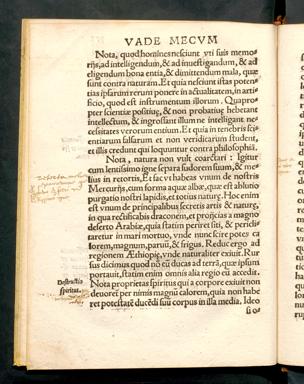 VADE MECVM
Nota, quod homines nesciunt vti suis memo-
rijs, ad intelligendum, & ad inuestigandum, & ad
eligendum bona entia, & dimittendum mala, quæ
sunt contra naturam. Et quia nesciunt istas poten-
tias ipsarum rerum ponere in actualitatem, in arti-
ficio, quod est instrumentum illorum. Quapro-
pter scientiæ positiuæ, & non probatiuæ hebetant
intellectum, & ingrossant illum ne intelligant ne-
cessitates verorum entium. Et quia in tenebris sci-
entiarum falsarum et non veridicarum student,
et illis credunt qui loquuntur contra philosophiã.
Nota, natura non vult coarctari: Igitur
cum lentissimo igne separa sudorem suum, & me-
lius in retortis, Et sac vt habeas vnum de nostris
Mercurijs, cum forma aquæ albæ, quæ est ablutio
purgatio nostri lapidis, et totius naturæ. Hoc enim
est vnum de principalibus secretis artis & naturæ,
in qua rectificabis draconem, et proijcias a magno
deserto Arabiæ, quia statim periret siti, & pericli-
taretur in mari mortuo, vnde nunc pone per ca
lorem, magnum, paruũ, & frigus. Reduc ergo ad
regionem Æthiopiæ, vnde naturaliter exiuit. Rur
sus dicimus quod nõ eũ ducas ad terrã, quæ ipsum
portauit, statim enim omnis alia regio eũ accedit.
Nota proprietas spiritus qui a corpore exiuit non
deuoret per nimis magnũ calorem, quia non habe
ret potestatẽ ducẽdi suũ corpus in illa media. Ideo
si o-
Destructio
spiritus.